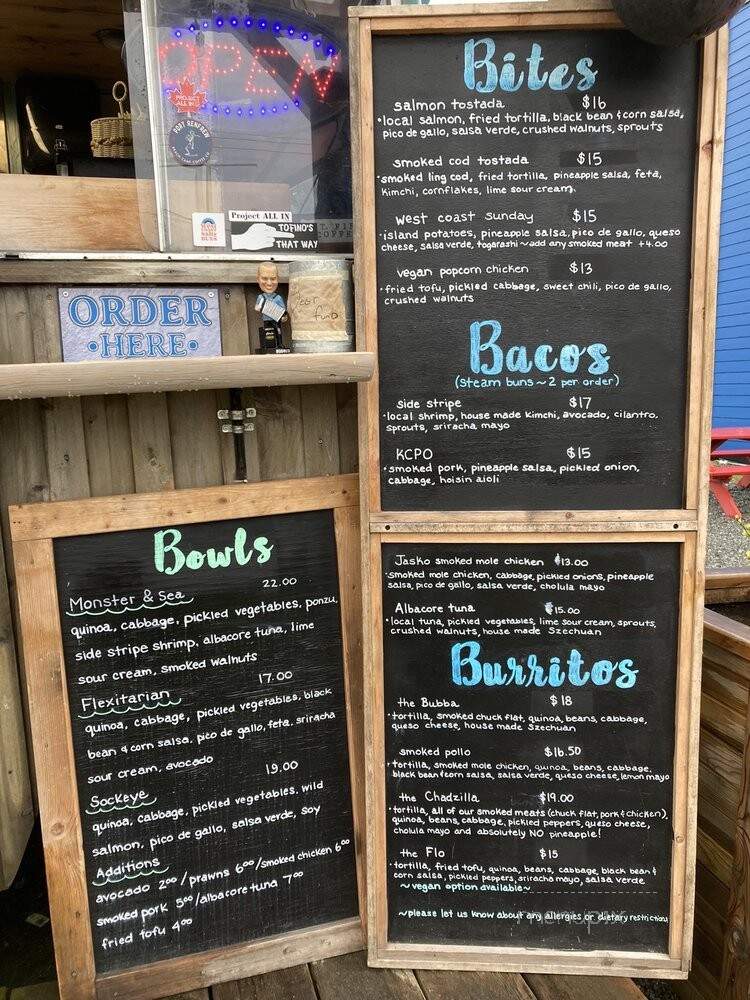 OPEN
PROJECT
ALL IN
PORT RENFREW
Project ALL IN
TOFINO'S
THAT WAY
ORDER
•HERE•
Bites
salmon tostada $16
•local salmon, fried tortilla, black bean & corn salsa,
pico de gallo, salsa verde, crushed walnuts, sprouts
smoked cod tostada $15
•smoked ling cod, fried tortilla, pineapple salsa, feta,
kimchi, cornflakes, lime sour cream
west coast sunday $15
•island potatoes, pineapple salsa, pico de gallo, queso
cheese, salsa verde, togarashi ~ add any smoked meat +4.00
vegan popcorn chicken $13
•fried tofu, pickled cabbage, sweet chili, pico de gallo,
crushed walnuts
Bacos
(steam buns ~ 2 per order)
side stripe $17
•local shrimp, house made kimchi, avocado, cilantro,
sprouts, sriracha mayo
KCPO $15
•smoked pork, pineapple salsa, pickled onion,
cabbage, hoisin aioli
Jasko smoked mole chicken $13.00
•smoked mole chicken, cabbage, pickled onions, pineapple
salsa, pico de gallo, salsa verde, cholula mayo
Albacore tuna $15.00
•local tuna, pickled vegetables, lime sour cream, sprouts,
crushed walnuts, house made Szechuan
Burritos
the Bubba $18
•tortilla, smoked chuck flat, quinoa, beans, cabbage,
queso cheese, house made Szechuan
smoked pollo $16.50
•tortilla, smoked mole chicken, quinoa, beans, cabbage,
black bean & corn salsa, salsa verde, queso cheese, lemon mayo
the Chadzilla $19.00
•tortilla, all of our smoked meats (chuck flat, pork & chicken),
quinoa, beans, cabbage, pickled peppers, queso cheese,
cholula mayo and absolutely NO pineapple!
the Flo $15
•tortilla, fried tofu, quinoa, beans, cabbage, black bean &
corn salsa, pickled peppers, sriracha mayo, salsa verde
~vegan option available~
~please let us know about any allergies or dietary restrictions
Bowls
Monster & Sea 22.00
quinoa, cabbage, pickled vegetables, ponzu,
side stripe shrimp, albacore tuna, lime
sour cream, smoked walnuts
Flexitarian 17.00
quinoa, cabbage, pickled vegetables, black
bean & corn salsa, pico de gallo, feta, sriracha
sour cream, avocado
Sockeye 19.00
quinoa, cabbage, pickled vegetables, wild
salmon, pico de gallo, salsa verde, soy
Additions
avocado 2⁰⁰ / prawns 6⁰⁰ / smoked chicken 6⁰⁰
smoked pork 5⁰⁰ / albacore tuna 7⁰⁰
fried tofu 4⁰⁰